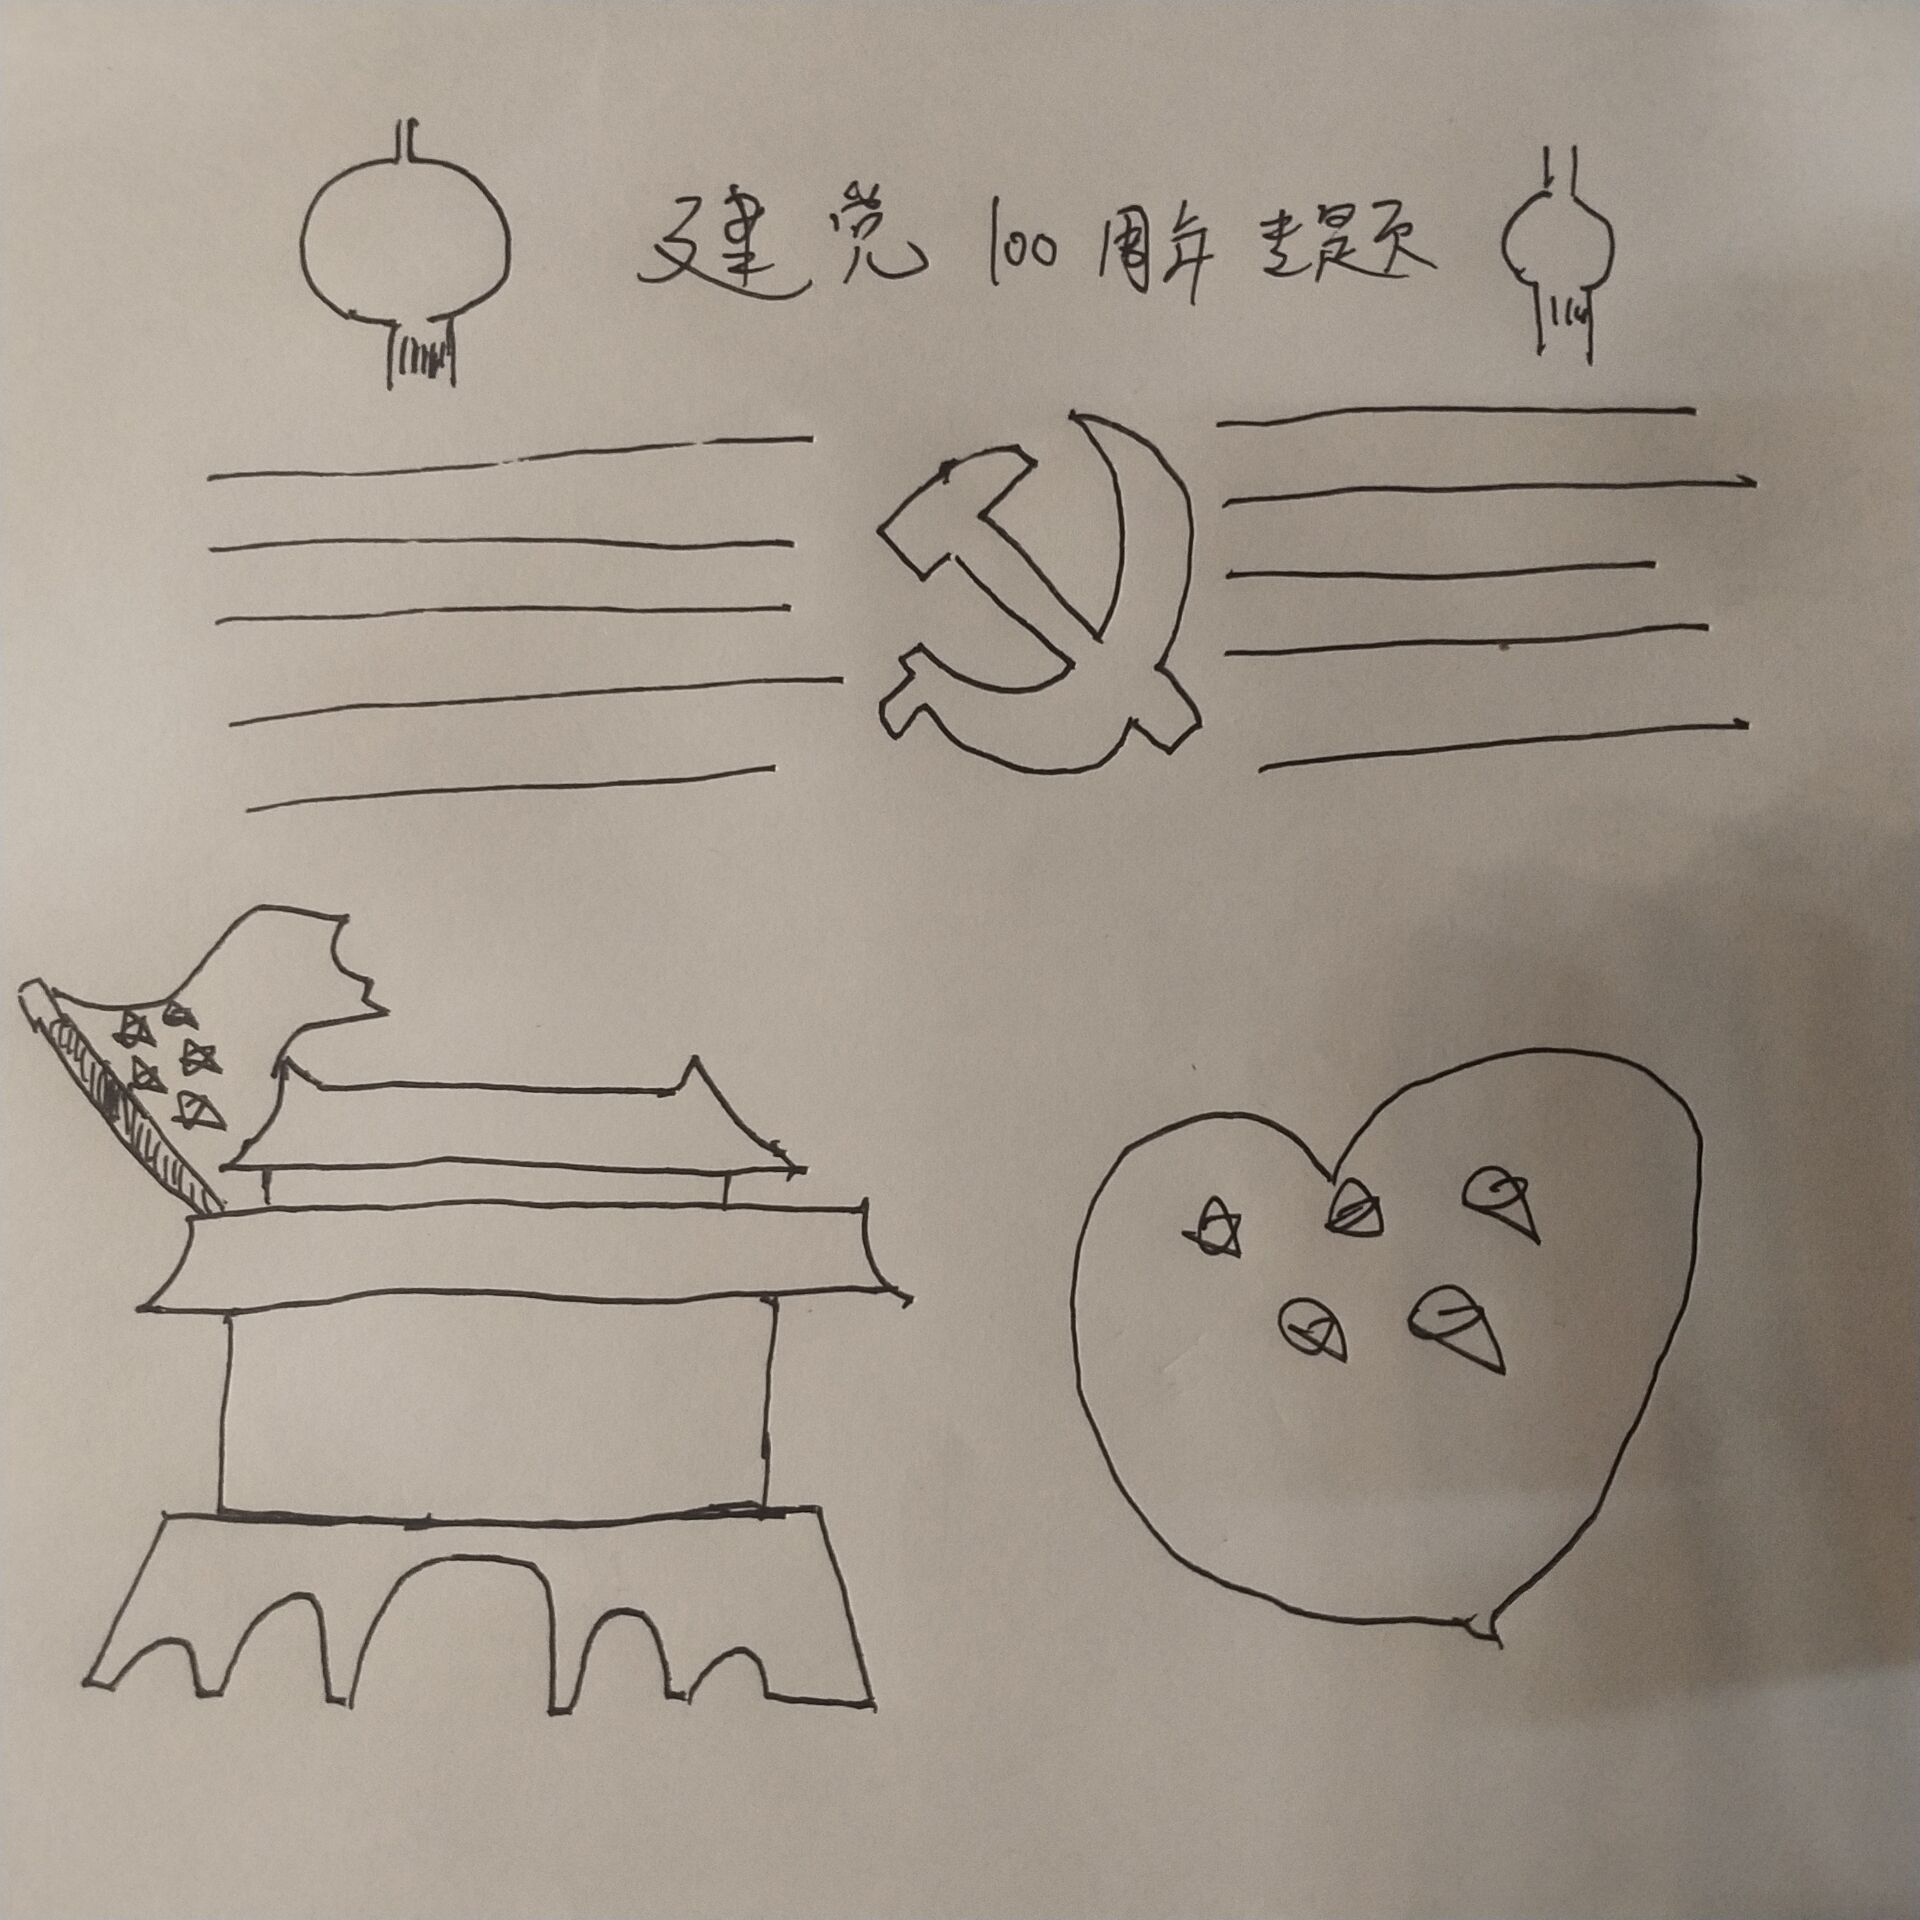 建党100周年主题